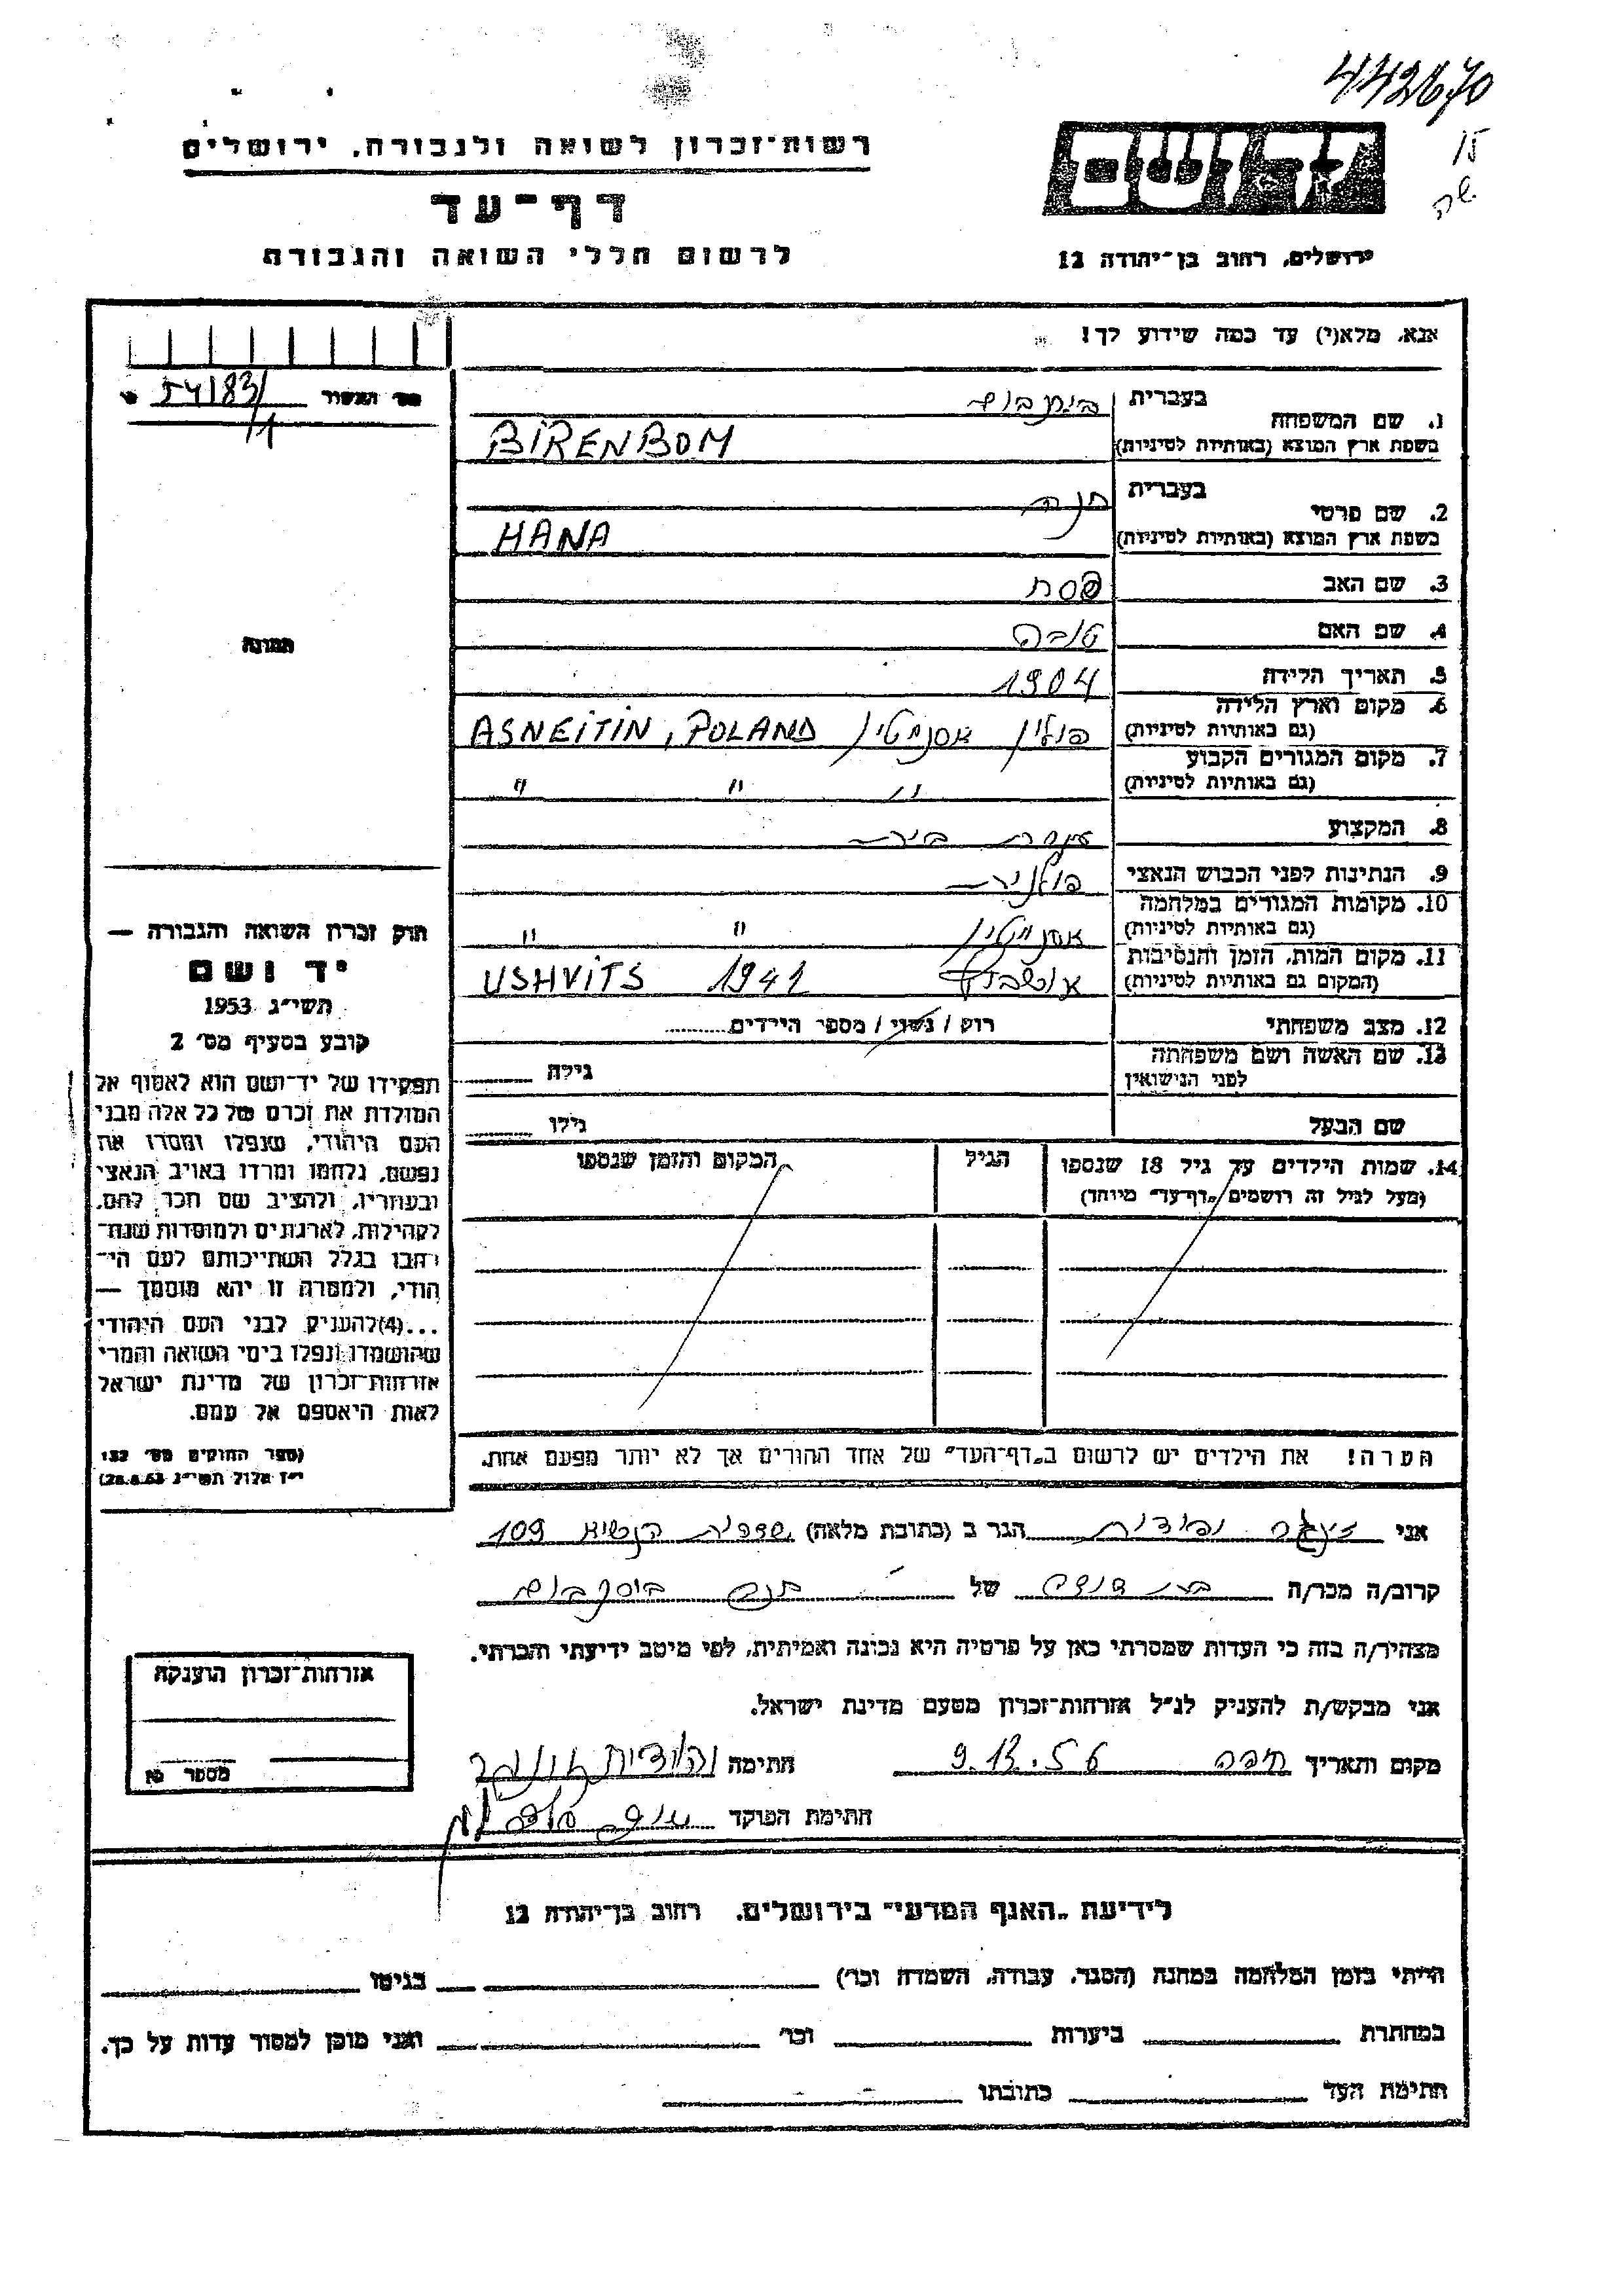 442670
15
רשות־זכרון לשואה ולגבורה, ירושלים
דף־עד
לרשום חללי השואה והגבורה
ירושלים, רחוב בן־יהודה 12
אנא, מלא(י) עד כמה שידוע לך!
מס׳ האשור 54183/1
1. שם המשפחה בעברית בירנבוים
בשפת ארץ המוצא (באותיות לטיניות) BIRENBOM
2. שם פרטי בעברית חנה
בשפת ארץ המוצא (באותיות לטיניות) HANA
3. שם האב פסח
4. שם האם טובה
5. תאריך הלידה 1904
6. מקום וארץ הלידה פולין ASNEITIN, POLAND
(גם באותיות לטיניות)
7. מקום המגורים הקבוע " " "
(גם באותיות לטיניות)
8. המקצוע עקרת בית
9. הנתינות לפני הכבוש הנאצי פולנית
10. מקומות המגורים במלחמה " "
(גם באותיות לטיניות)
11. מקום המות, הזמן והנסיבות 1941 USHVITS
(המקום גם באותיות לטיניות)
12. מצב משפחתי רוק / נשוי / מספר הילדים
13. שם האשה ושם משפחתה גילה
לפני הנישואין
שם הבעל גילו
14. שמות הילדים עד גיל 18 שנספו הגיל המקום והזמן שנספו
(מעל לגיל זה רושמים „דף־עד״ מיוחד)
הערה! את הילדים יש לרשום ב„דף־העד״ של אחד ההורים אך לא יותר מפעם אחת.
תמונה
חוק זכרון השואה והגבורה —
יד ושם
תשי״ג 1953
קובע בסעיף מס׳ 2
תפקידו של יד־ושם הוא לאסוף אל
המולדת את זכרם של כל אלה מבני
העם היהודי, שנפלו ומסרו את
נפשם, נלחמו ומרדו באויב הנאצי
ובעוזריו, ולהציב שם וזכר להם,
לקהילות, לארגונים ולמוסדות שנח־
רבו בגלל השתייכותם לעם הי־
הודי, ולמטרה זו יהא מוסמך —
...(4)להעניק לבני העם היהודי
שהושמדו ונפלו בימי השואה והמרי
אזרחות־זכרון של מדינת ישראל
לאות היאספם אל עמם.
(ספר החוקים מס׳ 132
י״ז אלול תשי״ג 28.8.53)
אני יהודית הגר ב (כתובת מלאה) שדרות הנשיא 109
קרוב/ה מכר/ה בת דודה של חנה בירנבוים
מצהיר/ה בזה כי העדות שמסרתי כאן על פרטיה היא נכונה ואמיתית, לפי מיטב ידיעתי והכרתי.
אני מבקש/ת להעניק לנ״ל אזרחות־זכרון מטעם מדינת ישראל.
מקום ותאריך חיפה 9.12.56 חתימה יהודית
חתימת הפוקד
אזרחות־זכרון הוענקה
מספר
לידיעת „האגף המדעי״ בירושלים, רחוב בן־יהודה 12
הייתי בזמן המלחמה במחנה (הסגר, עבודה, השמדה וכו׳) בגיטו
במחתרת ביערות וכו׳ ואני מוכן למסור עדות על כך.
חתימת העד כתובתו